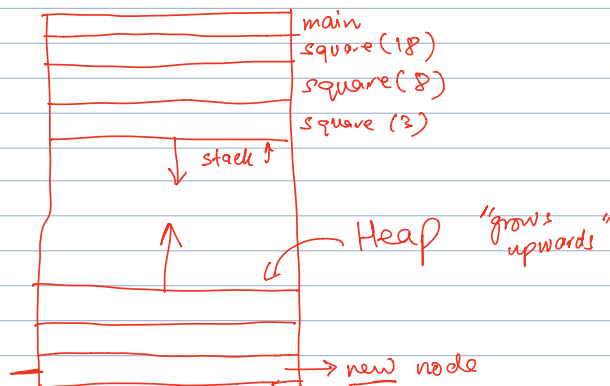 main
square(18)
square(8)
square (3)
stack ↑
Heap "grows
upwards"
→ new node